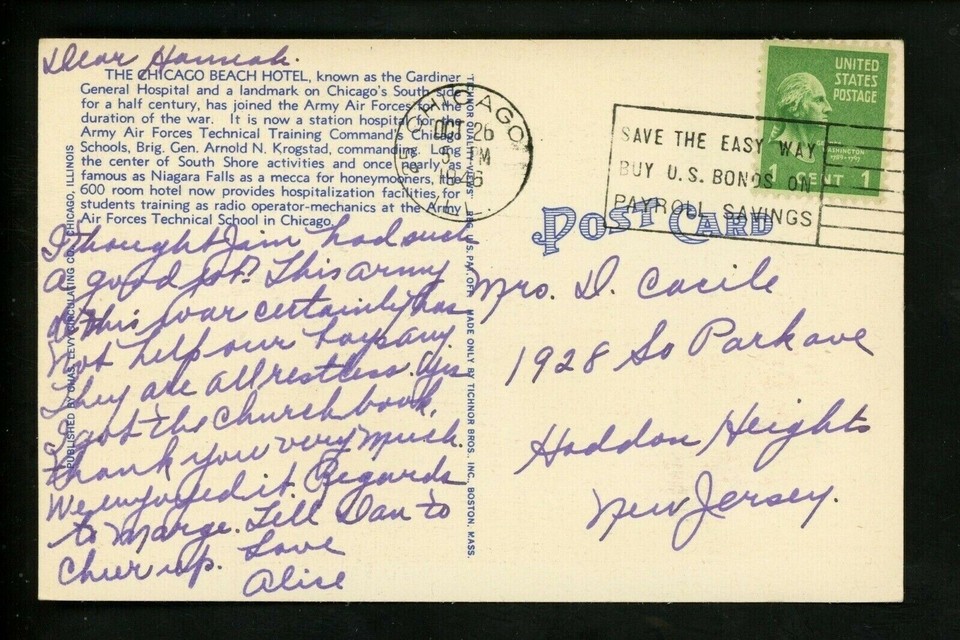 Dear Hannah.
THE CHICAGO BEACH HOTEL, known as the Gardiner
General Hospital and a landmark on Chicago's South side
for a half century, has joined the Army Air Forces for the
duration of the war. It is now a station hospital for the
Army Air Forces Technical Training Command's Chicago
Schools, Brig. Gen. Arnold N. Krogstad, commanding. Long
the center of South Shore activities and once nearly as
famous as Niagara Falls as a mecca for honeymooners, the
600 room hotel now provides hospitalization facilities for
students training as radio operator-mechanics at the Army
Air Forces Technical School in Chicago.
I thought Jim had such
a good job? This army
& this war certainly has
not help our boys any.
They are all restless. Yes
I got the church book,
thank you very much.
We enjoyed it. Regards
to Marge. Tell Dan to
cheer up. Love
Alice
PUBLISHED BY CHAS. LEVY CIRCULATING CO., CHICAGO, ILLINOIS
TICHNOR QUALITY VIEWS REG. U.S. PAT. OFF. MADE ONLY BY TICHNOR BROS., INC., BOSTON, MASS.
CHICAGO
OCT 26
5 PM
1946
ILL.
SAVE THE EASY WAY
BUY U.S. BONDS ON
PAYROLL SAVINGS
UNITED
STATES
POSTAGE
WASHINGTON
1789-1797
1 CENT 1
POST CARD
Mrs. D. Cacile
1928 So Park ave
Haddon Heights
New Jersey.